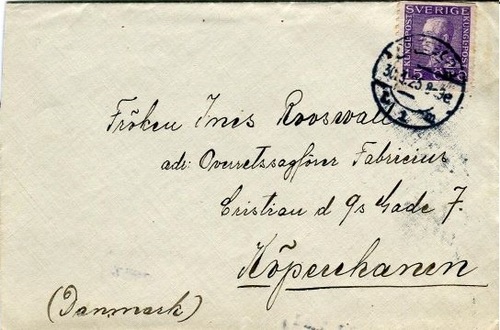 SVERIGE
KUNGL.POST
KUNGL.POST
15
30.
Fröken Ines Rooswall
adr. Overretssagförer Fabricius
Cristian d 9s Gade 7.
Köpenhamn
(Danmark)